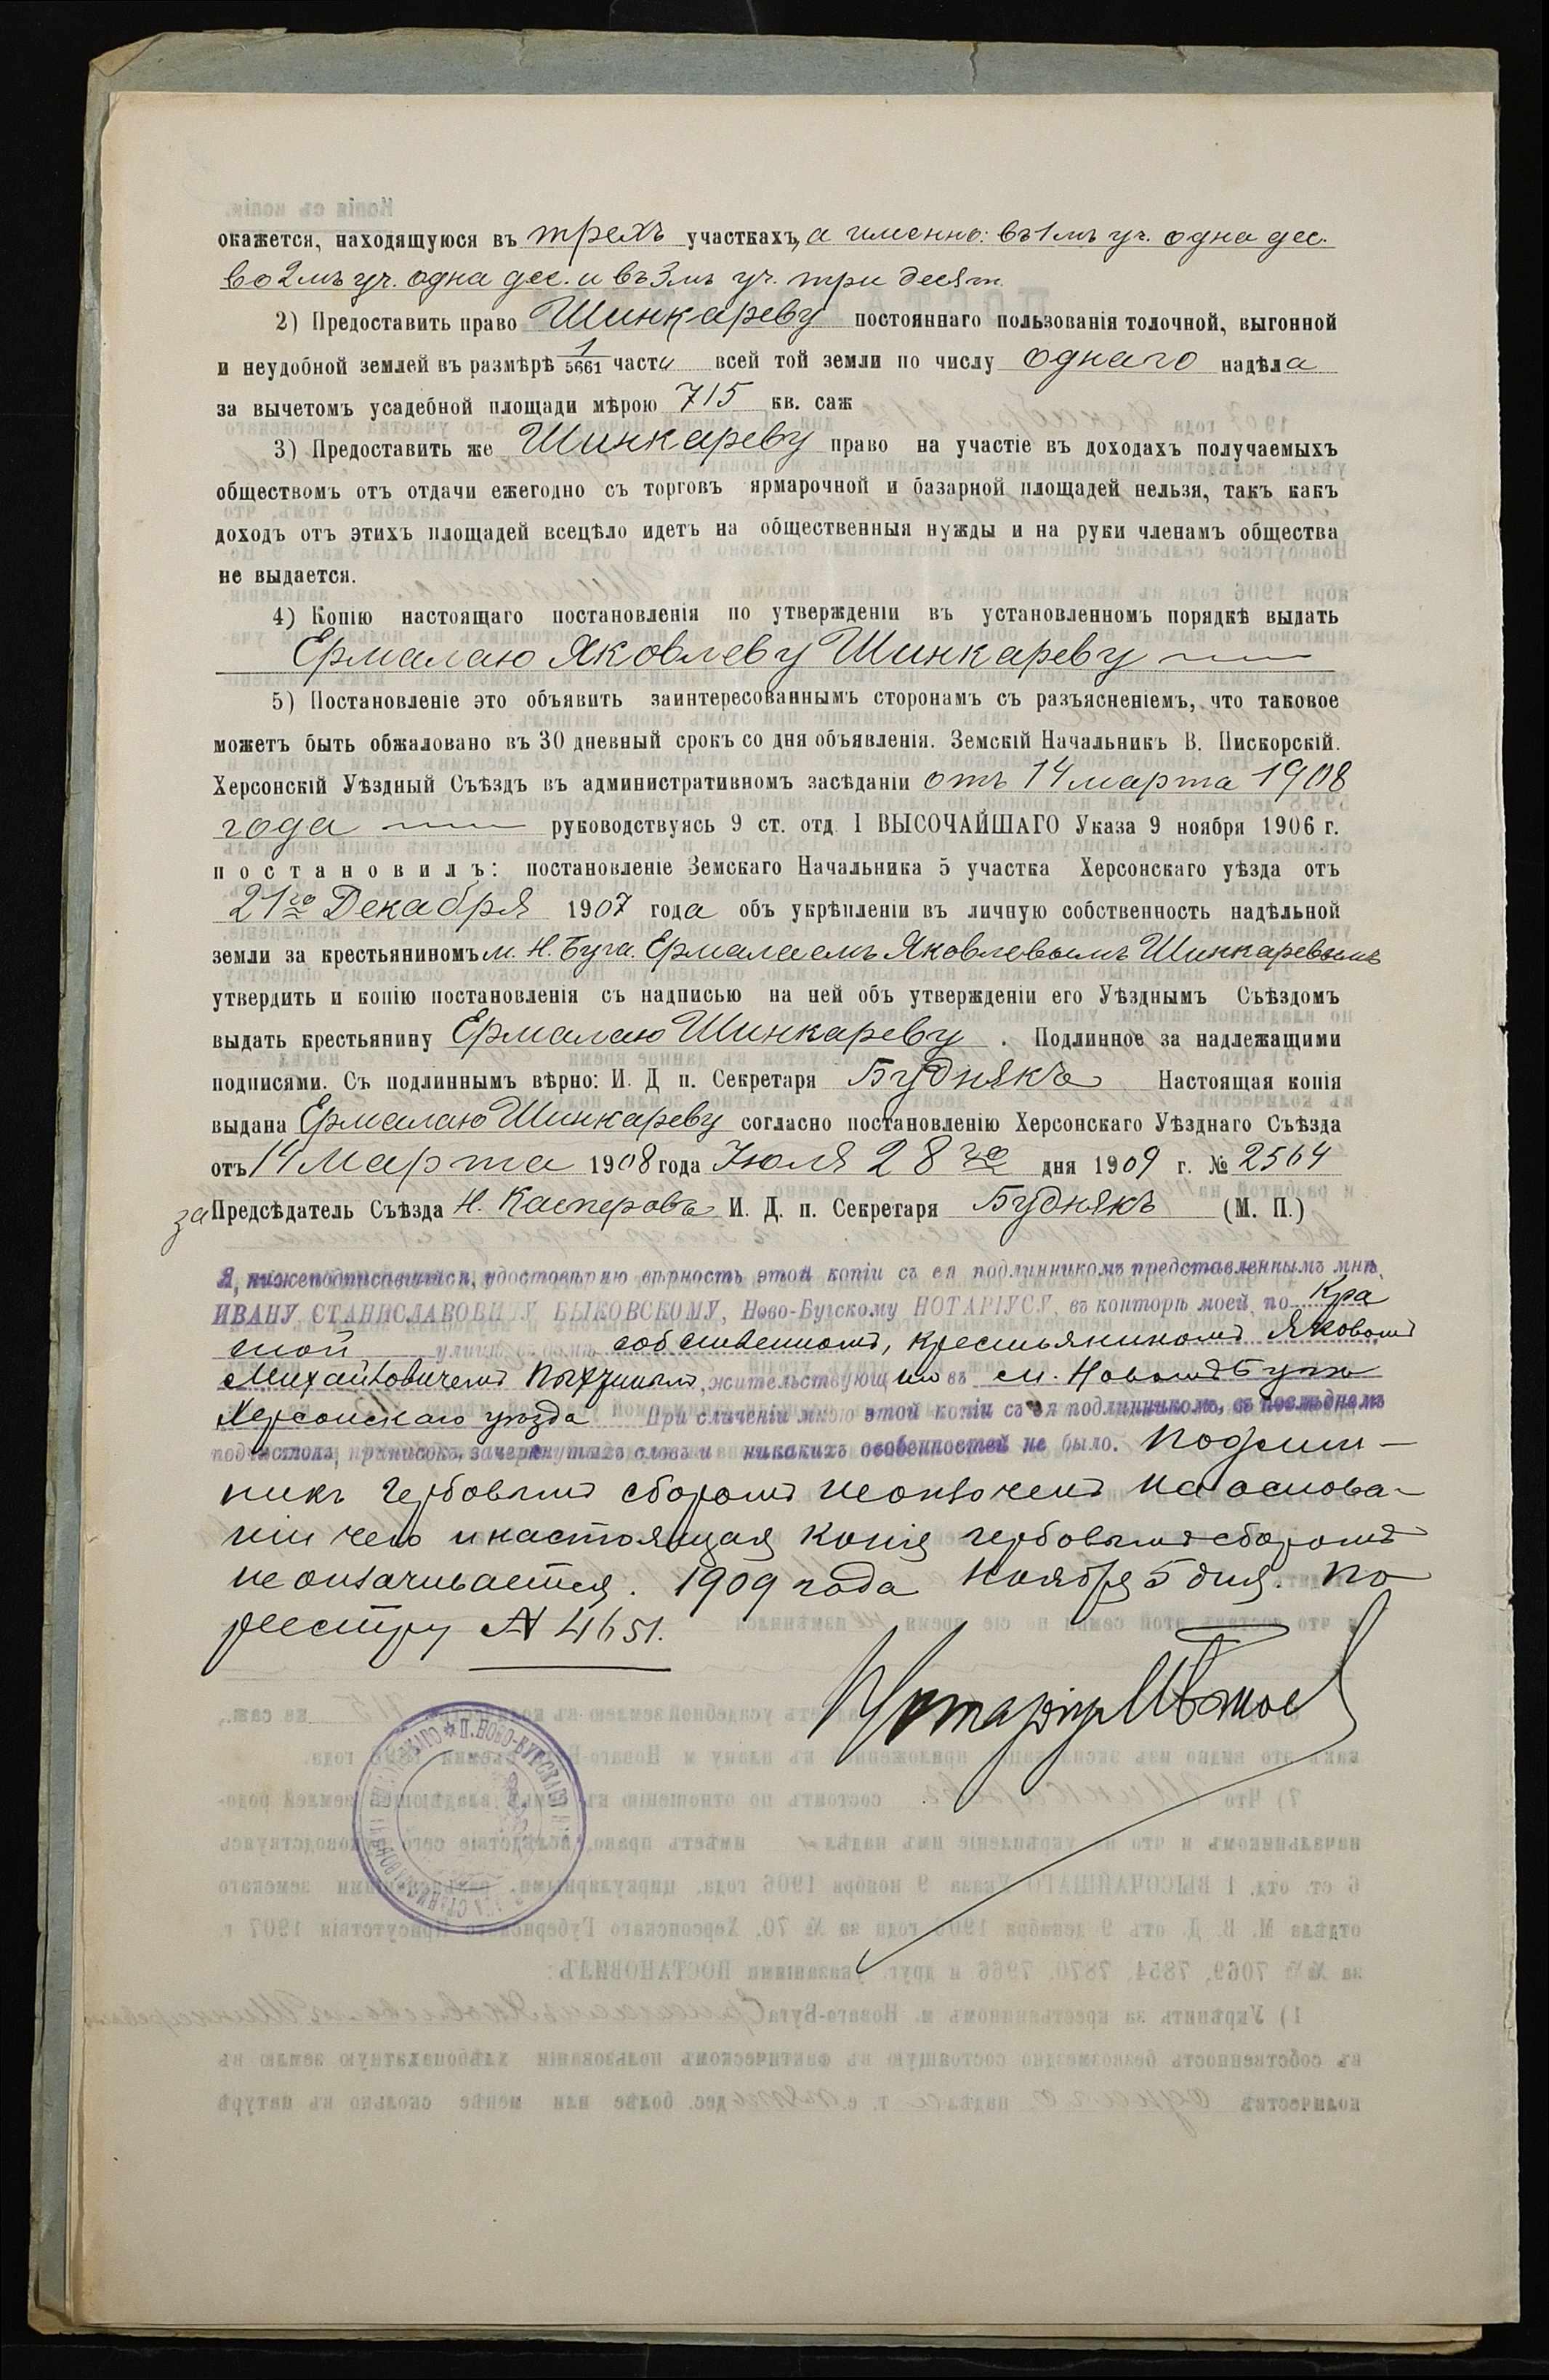 окажется, находящуюся въ трехъ участкахъ, а именно: въ 1мъ уч. одна дес.
во 2мъ уч. одна дес. и въ 3мъ уч. три десят.
2) Предоставить право Шинкареву постояннаго пользованія толочной, выгонной
и неудобной землей въ размѣрѣ 1/5661 части всей той земли по числу однаго надѣла
за вычетомъ усадебной площади мѣрою 715 кв. саж
3) Предоставить же Шинкареву право на участіе въ доходахъ получаемыхъ
обществомъ отъ отдачи ежегодно съ торговъ ярмарочной и базарной площадей нельзя, такъ какъ
доходъ отъ этихъ площадей всецѣло идетъ на общественныя нужды и на руки членамъ общества
не выдается.
4) Копію настоящаго постановленія по утвержденіи въ установленномъ порядкѣ выдать
Ермалаю Яковлеву Шинкареву
5) Постановленіе это объявить заинтересованнымъ сторонамъ съ разъясненіемъ, что таковое
можетъ быть обжаловано въ 30 дневный срокъ со дня объявленія. Земскій Начальникъ В. Пискорскій.
Херсонскій Уѣздный Съѣздъ въ административномъ засѣданіи отъ 14 марта 1908
года руководствуясь 9 ст. отд. I ВЫСОЧАЙШАГО Указа 9 ноября 1906 г.
постановилъ: постановленіе Земскаго Начальника 5 участка Херсонскаго уѣзда отъ
21го Декабря 1907 года объ укрѣпленіи въ личную собственность надѣльной
земли за крестьяниномъ м. Н. Буга. Ермалаемъ Яковлевымъ Шинкаревымъ
утвердить и копію постановленія съ надписью на ней объ утвержденіи его Уѣзднымъ Съѣздомъ
выдать крестьянину Ермалаю Шинкареву. Подлинное за надлежащими
подписями. Съ подлиннымъ вѣрно: И. Д п. Секретаря Буднякъ Настоящая копія
выдана Ермалаю Шинкареву согласно постановленію Херсонскаго Уѣзднаго Съѣзда
отъ 14 Марта 1908 года Іюля 28 го дня 1909 г. № 2564
за Предсѣдатель Съѣзда Н. Касперовъ И. Д. п. Секретаря Буднякъ (М. П.)
Я, нижеподписавшійся, удостовѣряю вѣрность этой копіи съ ея подлинникомъ представленнымъ мнѣ,
ИВАНУ СТАНИСЛАВОВИЧУ БЫКОВСКОМУ, Ново-Бугскому НОТАРІУСУ, въ конторѣ моей, по
улицѣ собственномъ, крестьяниномъ Яковомъ
Михайловичемъ жительствующимъ въ м. Новомъ Бугѣ
Херсонскаго уѣзда При сличеніи мною этой копіи съ ея подлинникомъ, въ послѣднемъ
подчистокъ, приписокъ, зачеркнутыхъ словъ и никакихъ особенностей не было. Подлин-
никъ гербовымъ сборомъ неоплоченъ на основа-
ніи чего и настоящая копія гербовымъ сборомъ
не оплачивается. 1909 года Ноября 5 дня. По
реестру № 4651.
Нотаріусъ